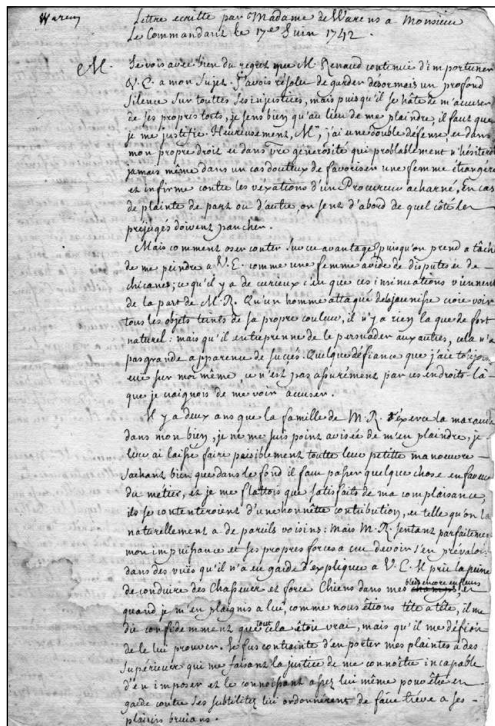 Warens
Lettre ecritte par Madame de Warens a Monsieur
Le Commandant le 17e Juin 1742.
M. Je vois avec bien du regret que M. Renaud continüe d'importuner
V. E. a mon sujet. J'avois résolu de garder désormais un profond
silence sur touttes ses injustices, mais puisqu'il se hâte de m'accuser
de ses propres torts, je sens bien qu'au lieu de me plaindre, il faut que
je me justifie. Heureusement, Mr, j'ai une double défense et dans
mon propre droit et dans vre générosité qui probablement n'hésiteroit
jamais même dans un cas douteux de favoriser une femme étrangére
et infirme contre les vexations d'un Procureur acharné. En cas
de plainte de part ou d'autre, on sent d'abord de quel côté les
préjugés doivent pancher.
Mais comment oser conter sur ce avantage, puisqu'on prend a tâche
de me peindre a V. E. comme une femme avide de disputes et de
chicanes; ce qu'il y a de curieux c'est que ces insinuations viennent
de la part de M. R. Qu'un homme attaqué de la jaunesse croie voir
tous les objets teints de sa propre couleur, il n'y a rien la que de fort
naturel: mais qu'il entreprenne de le persuader aux autres, cela n'a
pas grande apparence de succes. Quelque défiance que j'aie toujours
eue sur moi même, ce n'est pas assurément par ces endroits-là
que je craignois de me voir accuser.
Il y a deux ans que la famille de M. R. exerce la maraude
dans mon bien, je ne me suis point avisée de m'en plaindre; je
leur ai laissé faire paisiblement toutte leur petite manoeuvre
sachant bien que dans le fond il faut passer quelque chose en faveur
du metier, et je me flattois que satisfaits de ma complaisance,
ils se contenteroient d'une honnête contribution, et telle qu'on l'a
naturellement a de pareils voisins: mais M. R. sentant parfaitement
mon impuissance et ses propres forces a cru devoir s'en prévaloir
dans des vües qu'il n'a eu garde d'expliquer a V. E. Il prit la peine
de conduire des Chasseurs et force Chiens dans mes bleds encore en fleurs et
quand je m'en plaignis a lui, comme nous étions tête à tête, il me
dit confidemment que tout cela étoit vrai, mais qu'il me défioit
de le lui prouver. Je fus contrainte d'en porter mes plaintes à des
Superieurs qui me faisant la justice de me connoitre incapable
d'en imposer et le connoissant assez lui même pour être en
garde contre ses subtilités lui ordonnerent de faire trève a ses
plaisirs bruians.